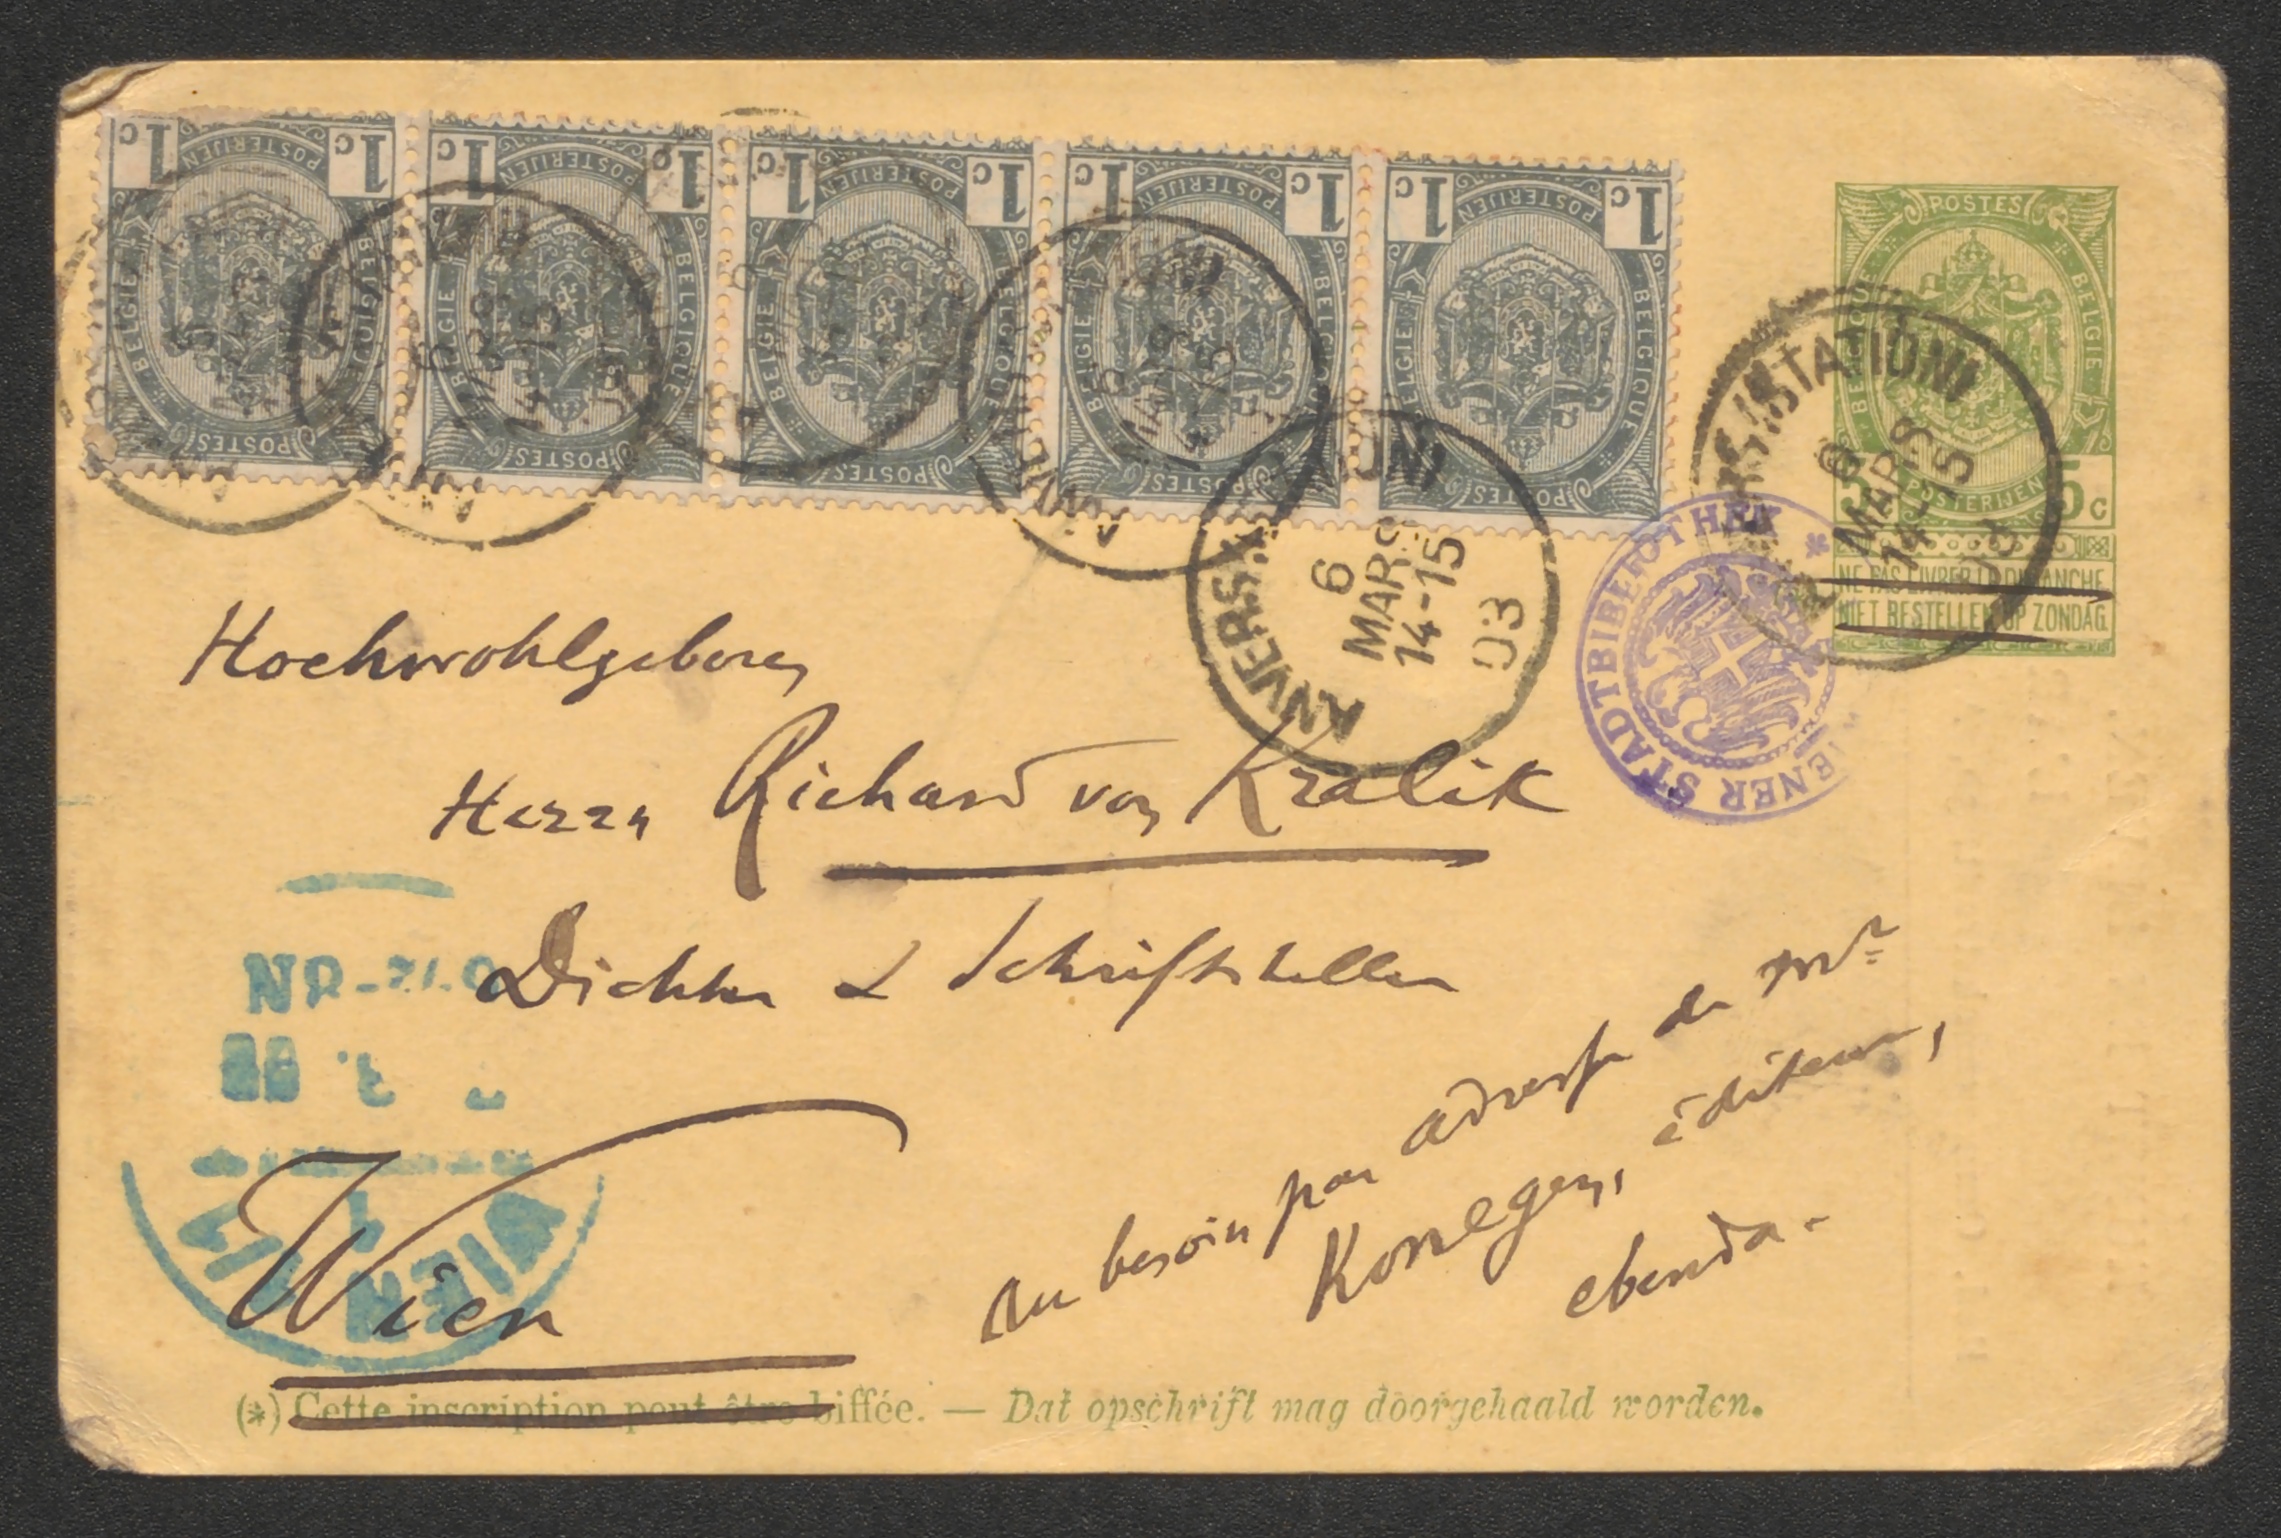 1c 1c 1c 1c 1c 1c 1c 1c 1c 1c
POSTERIJEN POSTERIJEN POSTERIJEN POSTERIJEN POSTERIJEN
BELGIE BELGIQUE BELGIE BELGIQUE BELGIE BELGIQUE BELGIE BELGIQUE BELGIE BELGIQUE
POSTES POSTES POSTES POSTES POSTES
POSTES
BELGIQUE BELGIE
POSTERIJEN
5c 5c
NE PAS LIVRER LE DIMANCHE
NIET BESTELLEN OP ZONDAG
ANVERS (STATION)
6
MARS
14-15
03
ANVERS (STATION)
6
MARS
14-15
03
WIENER STADTBIBLIOTHEK *
Hochwohlgeboren
Herrn Richard von Kralik
Dichter & Schriftsteller
Wien
Au besoin par adresse de Mr
Konegen, éditeur,
ebenda.
WIEN
(*) Cette inscription peut être biffée. — Dat opschrift mag doorgehaald worden.